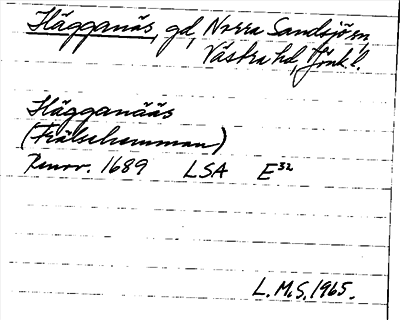 Hägganäs, gd, Norra Sandsjö sn,
Västra hd, Jönk. l.
Hägganääs
(Frälsehemman)
Renov. 1689 LSA E32
L.M.S. 1965.